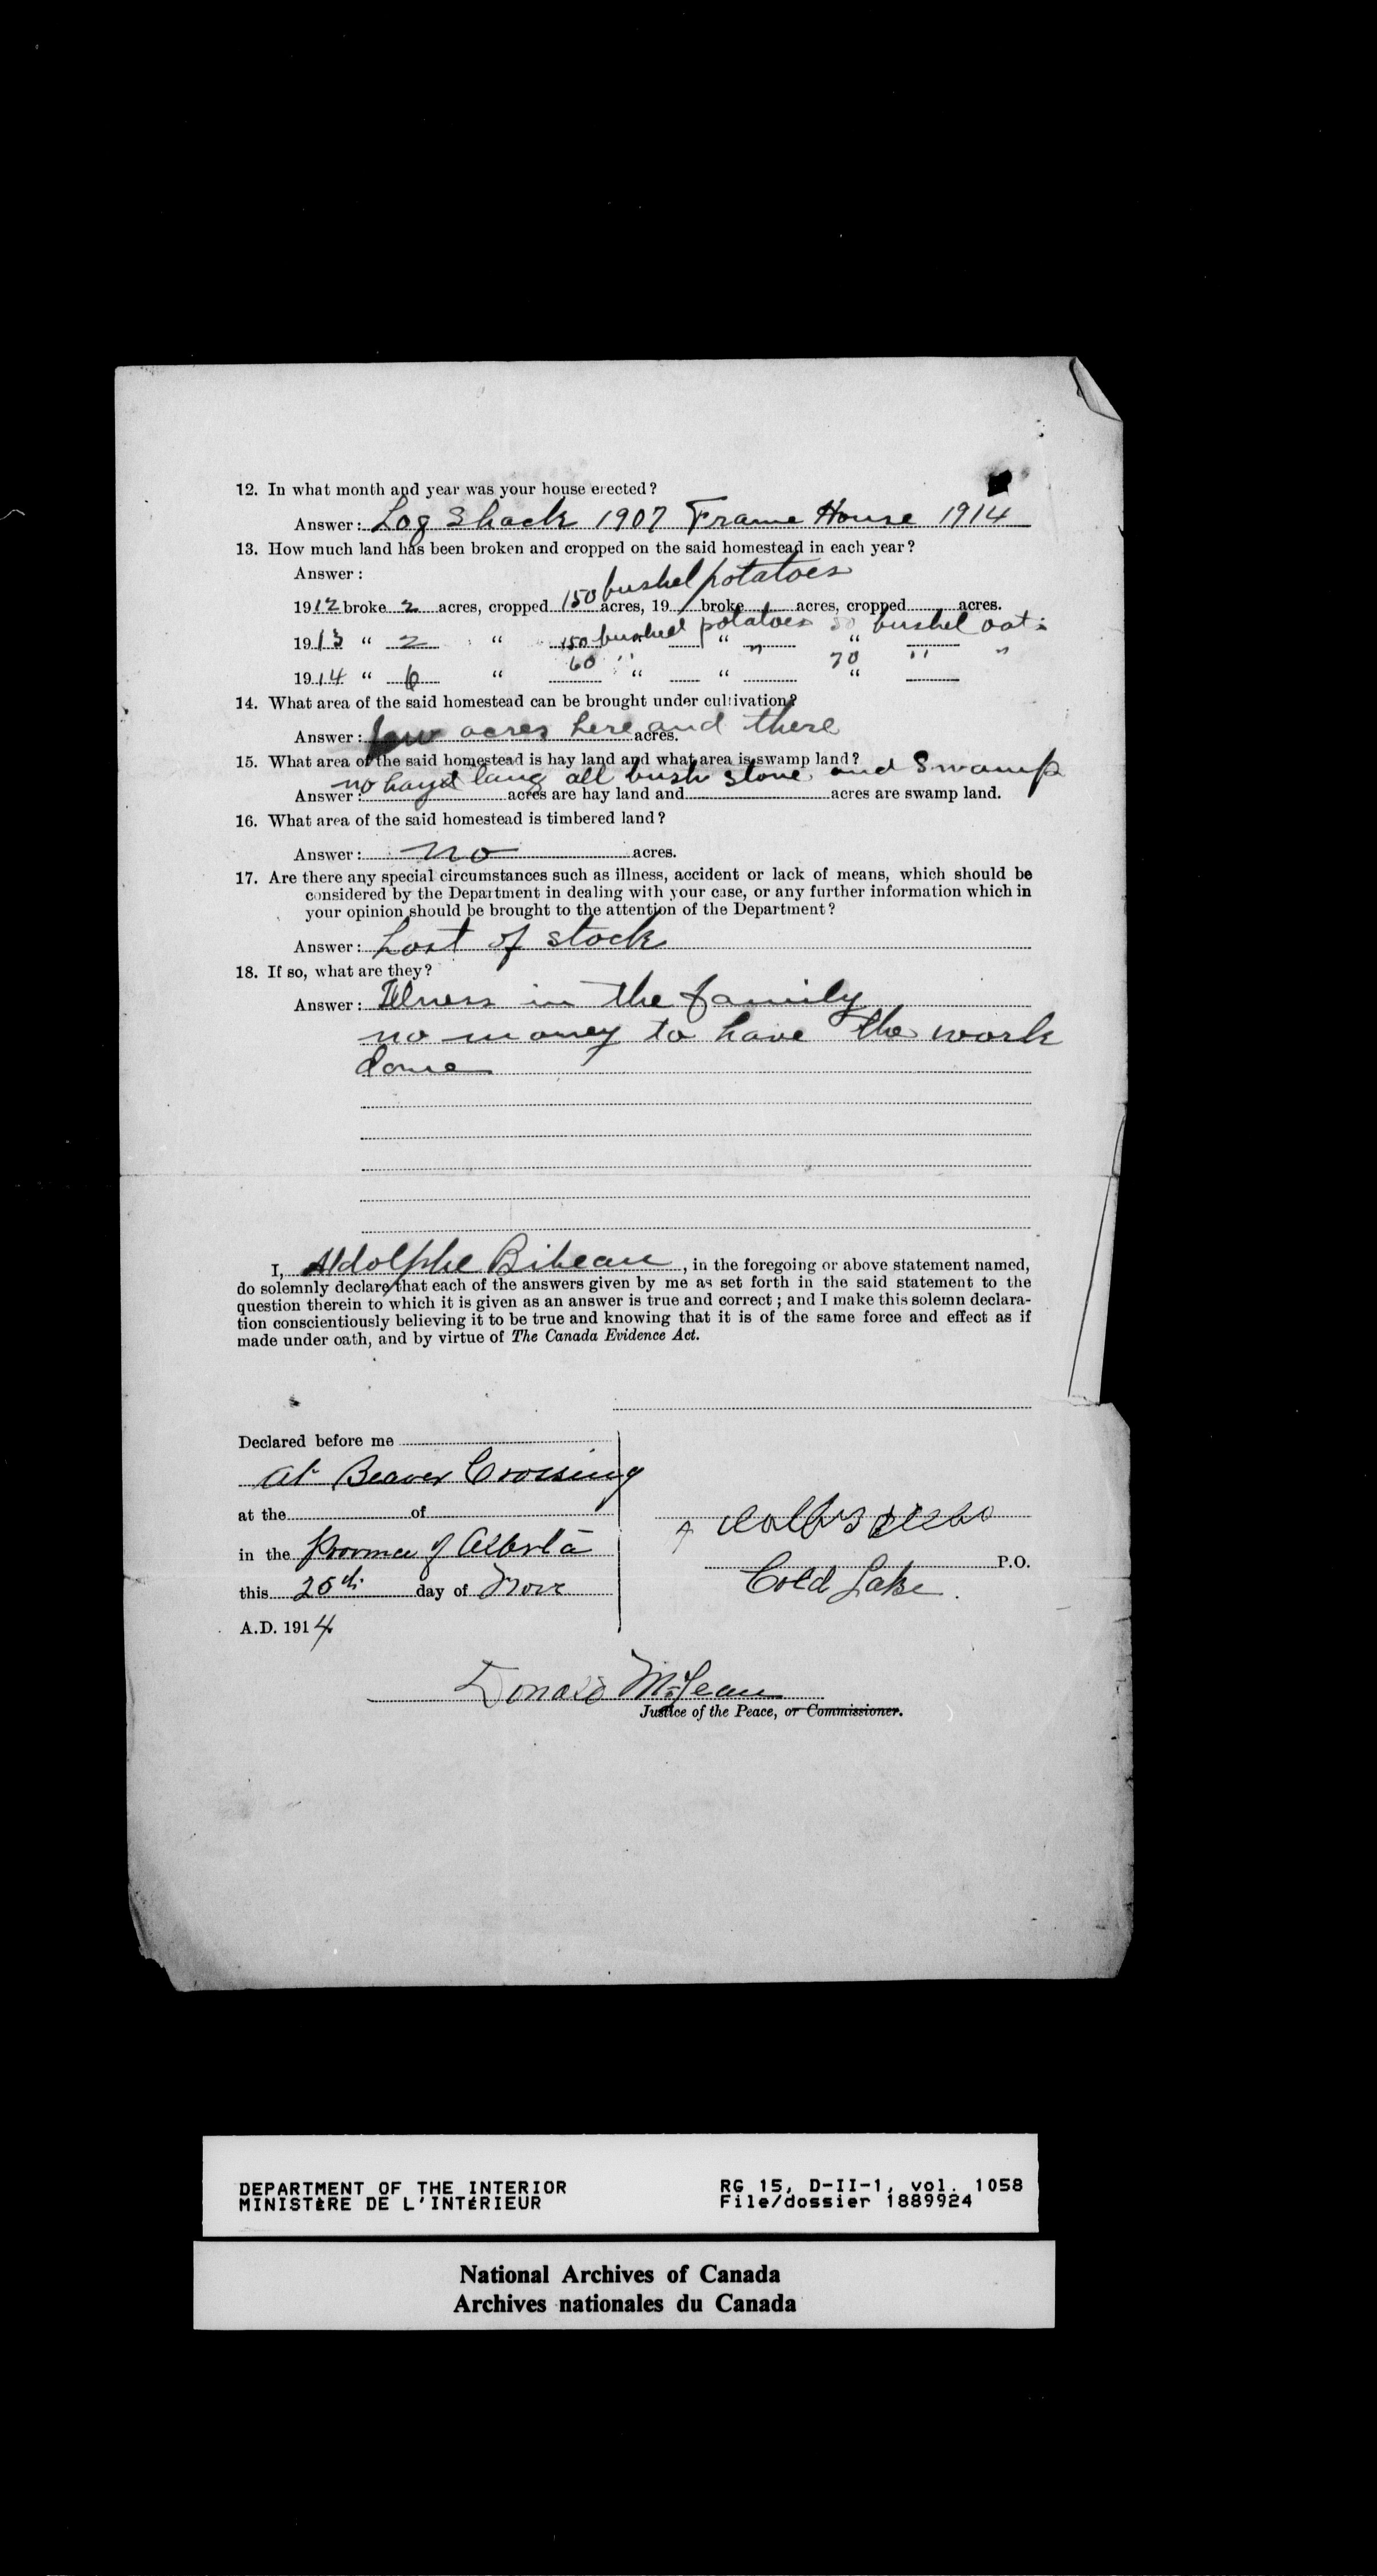 12. In what month and year was your house erected?
Answer: Log Shack 1907 Frame House 1914
13. How much land has been broken and cropped on the said homestead in each year?
Answer:
150 bushel potatoes
1912 broke 2 acres, cropped acres, 19 broke acres, cropped acres.
1913 " 2 " 150 bushel potatoes " " bushel oats
1914 " 6 " 60 " " " " 70 " " "
14. What area of the said homestead can be brought under cultivation?
Answer: few acres here and there acres.
15. What area of the said homestead is hay land and what area is swamp land?
no hay lang all bush stone and Swamp
Answer: acres are hay land and acres are swamp land.
16. What area of the said homestead is timbered land?
Answer: no acres.
17. Are there any special circumstances such as illness, accident or lack of means, which should be
considered by the Department in dealing with your case, or any further information which in
your opinion should be brought to the attention of the Department?
Answer: Lost of stock
18. If so, what are they?
Answer: Illness in the family
no money to have the work
done
I, Adolphe Bibeau, in the foregoing or above statement named,
do solemnly declare that each of the answers given by me as set forth in the said statement to the
question therein to which it is given as an answer is true and correct; and I make this solemn declara-
tion conscientiously believing it to be true and knowing that it is of the same force and effect as if
made under oath, and by virtue of The Canada Evidence Act.
Declared before me
at Beaver Crossing
at the of
in the Province of Alberta
this 25th day of Nov
A.D. 1914
P.O.
Cold Lake.
Donald McLean
Justice of the Peace, or Commissioner.
DEPARTMENT OF THE INTERIOR
MINISTÈRE DE L'INTÉRIEUR
RG 15, D-II-1, vol. 1058
File/dossier 1889924
National Archives of Canada
Archives nationales du Canada